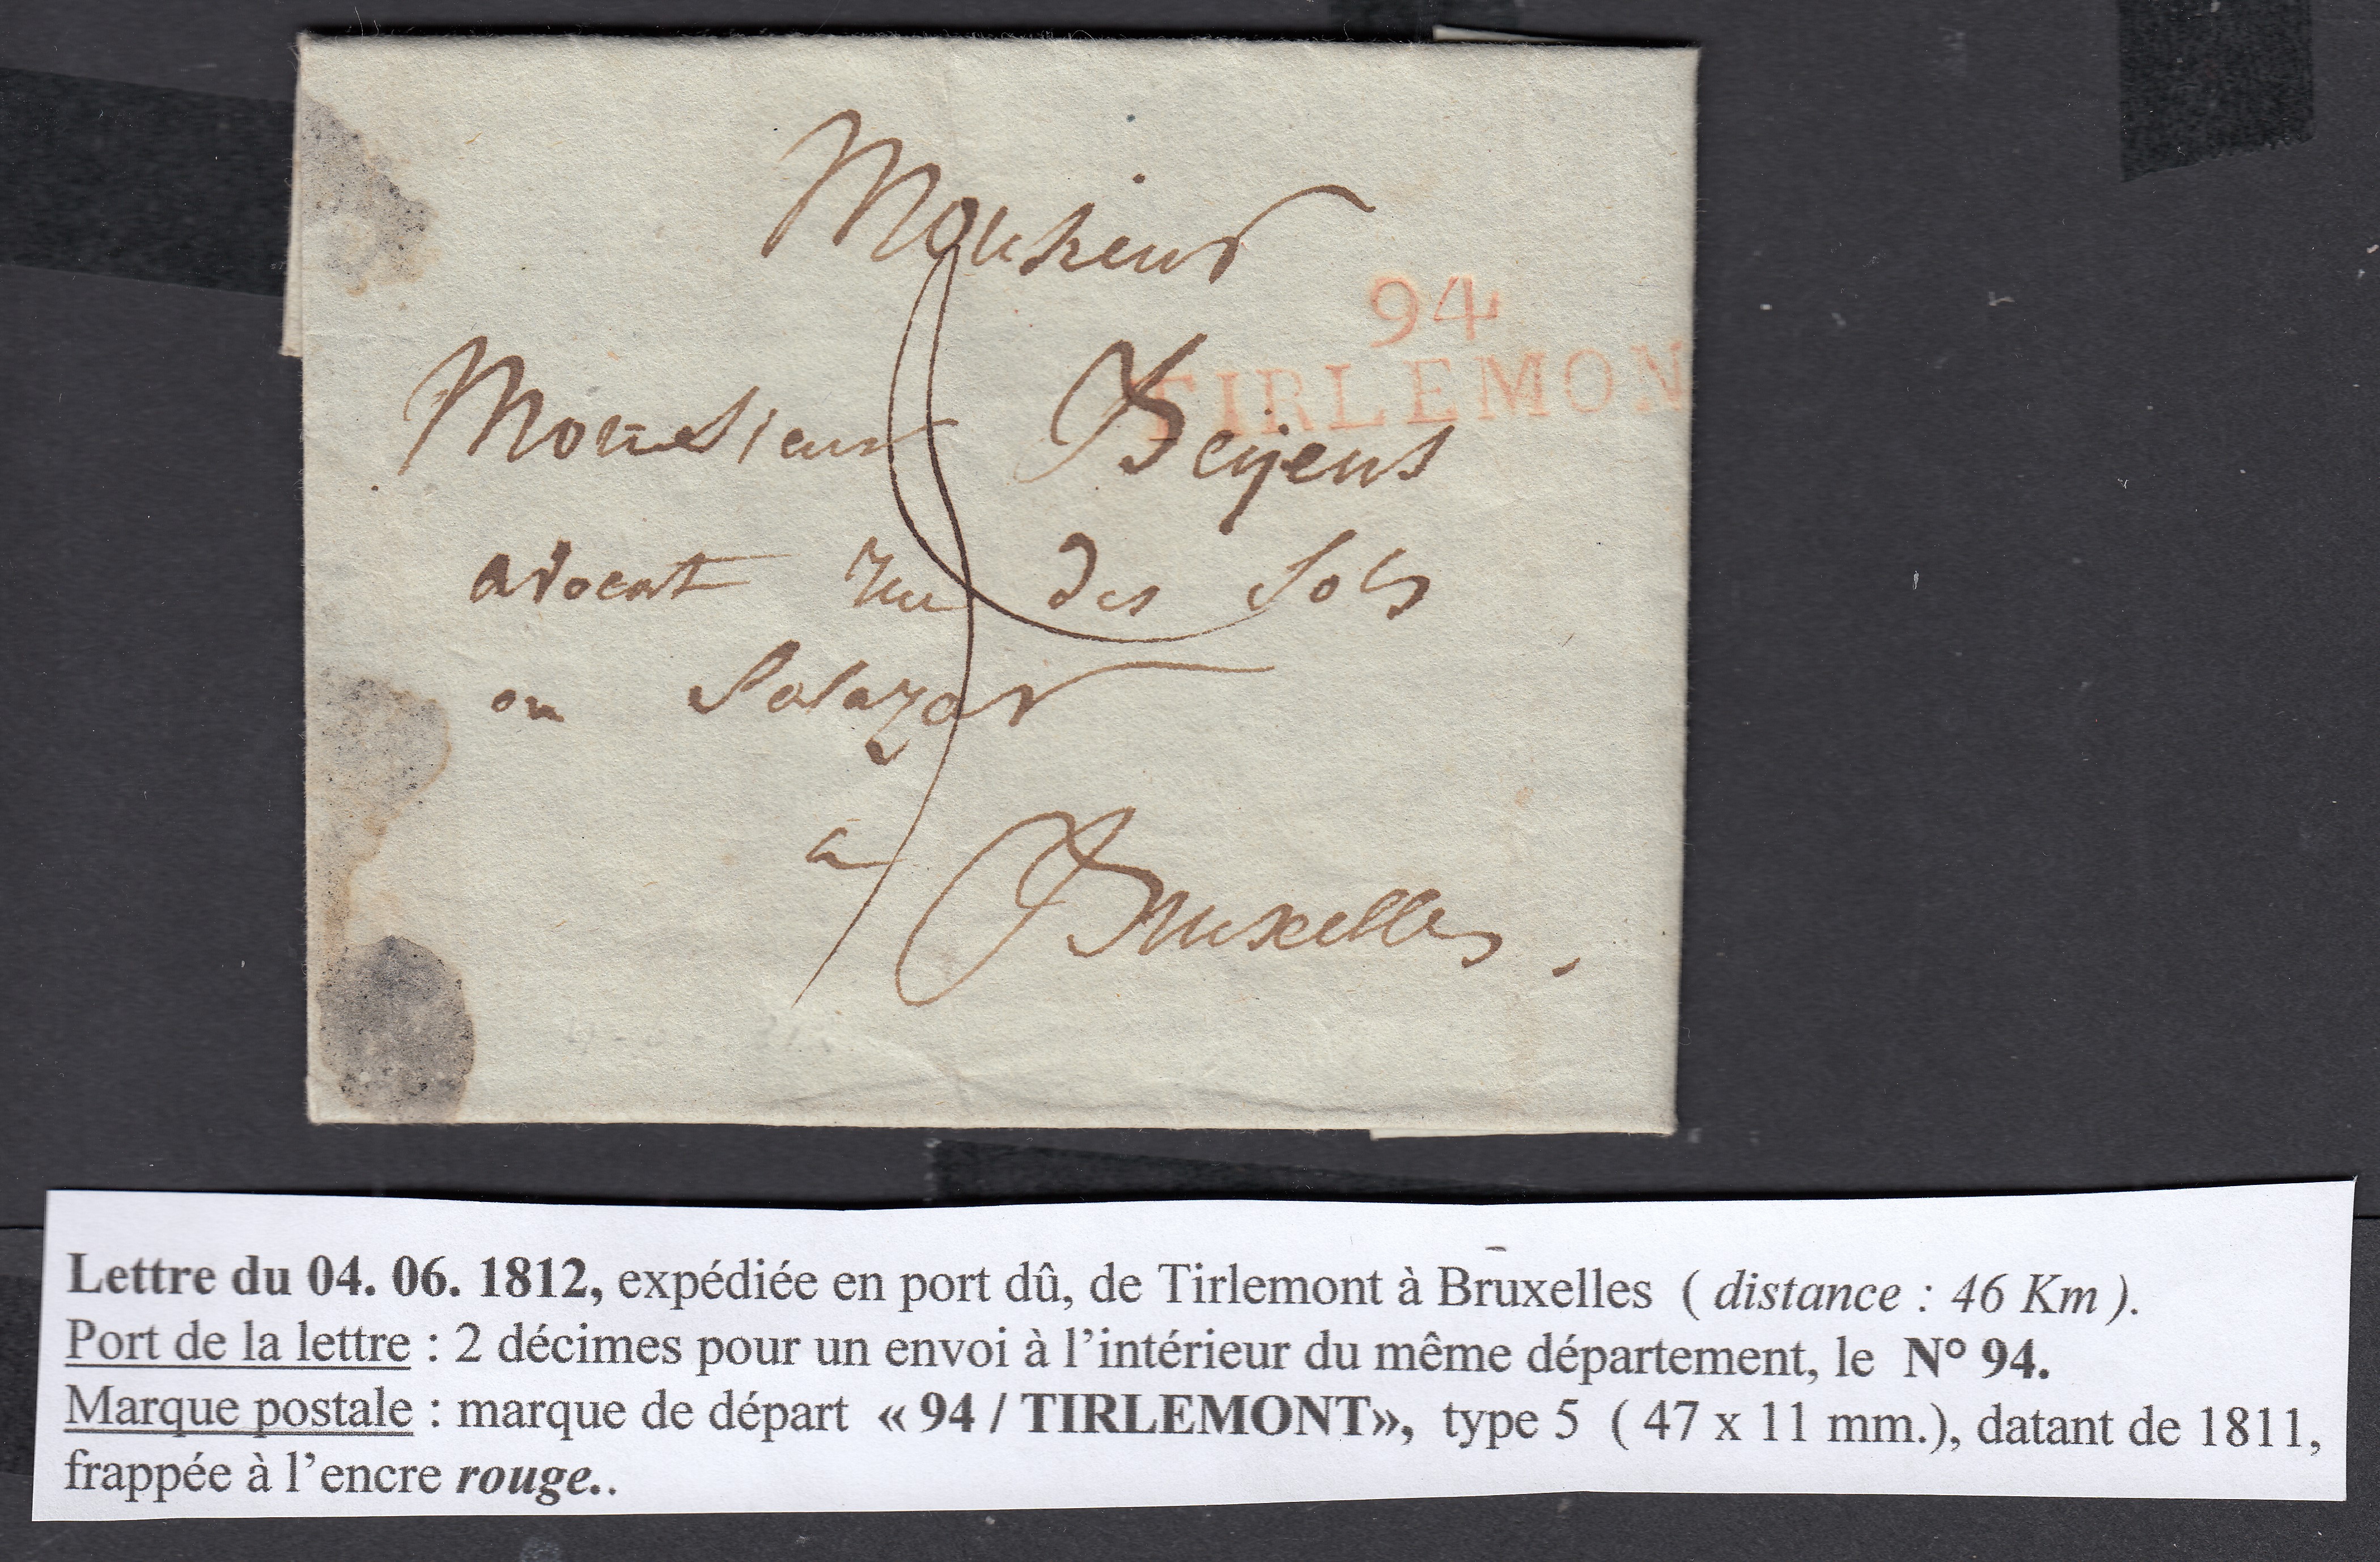 Monsieur
94
TIRLEMON
Monsieur Beyens
avocat rue des Sols
ou Salazar
a Bruxelles.
Lettre du 04. 06. 1812, expédiée en port dû, de Tirlemont à Bruxelles ( distance : 46 Km ).
Port de la lettre : 2 décimes pour un envoi à l’intérieur du même département, le N° 94.
Marque postale : marque de départ « 94 / TIRLEMONT», type 5 ( 47 x 11 mm.), datant de 1811,
frappée à l’encre rouge..